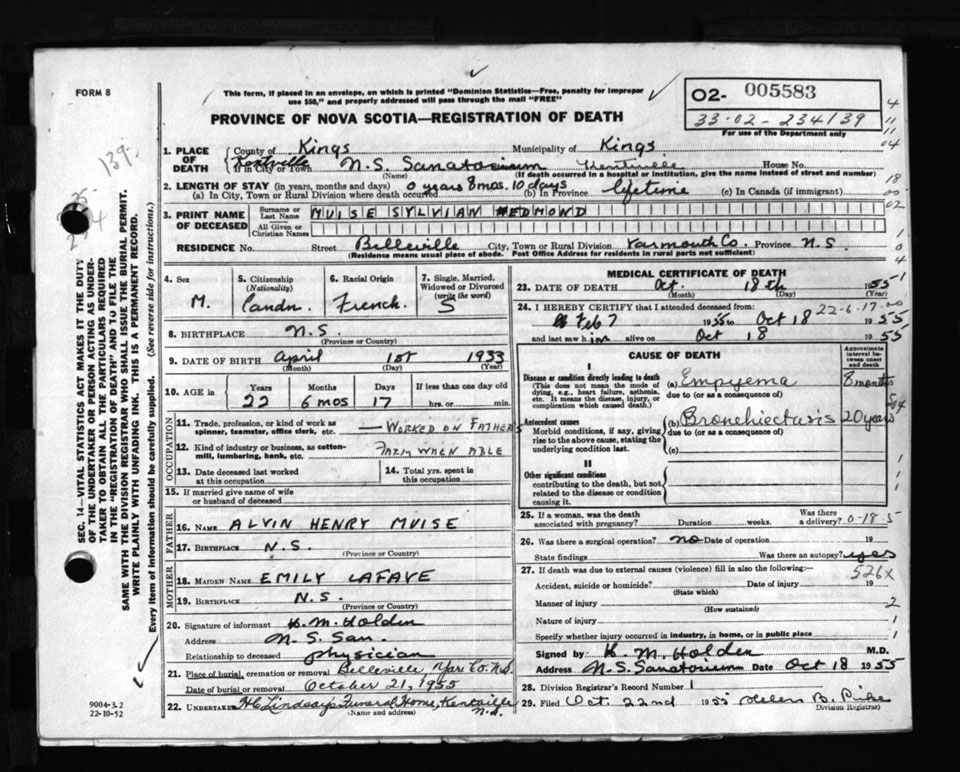 FORM 8
This form, if placed in an envelope, on which is printed "Dominion Statistics—Free, penalty for improper
use $50," and properly addressed will pass through the mail "FREE"
PROVINCE OF NOVA SCOTIA—REGISTRATION OF DEATH
O2- 005583
33-02-234139
For use of the Department only
4
11
11
04
18
00
02
1
0
4
139.
SEC. 14—VITAL STATISTICS ACT MAKES IT THE DUTY
OF THE UNDERTAKER OR PERSON ACTING AS UNDER-
TAKER TO OBTAIN ALL THE PARTICULARS REQUIRED
IN THE "REGISTRATION OF DEATH" AND TO FILE THE
SAME WITH THE DIVISION REGISTRAR WHO SHALL ISSUE THE BURIAL PERMIT.
WRITE PLAINLY WITH UNFADING INK. THIS IS A PERMANENT RECORD.
Every item of information should be carefully supplied. (See reverse side for instructions.)
9004-3.2
22-10-52
1. PLACE OF DEATH County of Kings Municipality of Kings
If in City or Town Kentville N.S. Sanatorium Kentville House No.
(Name) (If death occurred in a hospital or institution, give the name instead of street and number)
2. LENGTH OF STAY (in years, months and days) 0 years 8 mos. 10 days lifetime
(a) In City, Town or Rural Division where death occurred (b) in Province (c) In Canada (if immigrant)
3. PRINT NAME OF DECEASED Surname or Last Name MUISE SYLVIAN EDMOND
All Given or Christian Names
RESIDENCE No. Street Belleville City, Town or Rural Division Yarmouth Co. Province N.S.
(Residence means usual place of abode. Post Office Address for residents in rural parts not sufficient)
4. Sex M.
5. Citizenship (Nationality) Candn.
6. Racial Origin French.
7. Single, Married, Widowed or Divorced (write the word) S
8. BIRTHPLACE N.S.
(Province or Country)
9. DATE OF BIRTH April 1st 1933
(Month) (Day) (Year)
10. AGE in Years Months Days If less than one day old
22 6 mos 17 hrs. or min.
OCCUPATION
11. Trade, profession, or kind of work as spinner, teamster, office clerk, etc. — WORKED ON FATHER'S
12. Kind of industry or business, as cotton-mill, lumbering, bank, etc. FARM WHEN ABLE
13. Date deceased last worked at this occupation
14. Total yrs. spent in this occupation
15. If married give name of wife or husband of deceased
FATHER
16. NAME ALVIN HENRY MUISE
17. BIRTHPLACE N.S.
(Province or Country)
MOTHER
18. MAIDEN NAME EMILY LAFAVE
19. BIRTHPLACE N.S.
(Province or Country)
20. Signature of informant H. M. Holden
Address N. S. San.
Relationship to deceased physician
21. Place of burial, cremation or removal Belleville, Yar. Co. N.S.
Date of burial or removal October 21, 1955
22. UNDERTAKER H C Lindsay's Funeral Home, Kentville N.S.
(Name and address)
MEDICAL CERTIFICATE OF DEATH
23. DATE OF DEATH Oct. 18th 1955
(Month) (Day) (Year)
24. I HEREBY CERTIFY that I attended deceased from: 22-6-17-00
Feb 7 1955 to Oct 18 1955
and last saw him alive on Oct 18 1955
CAUSE OF DEATH
Approximate interval between onset and death
I
Disease or condition directly leading to death (a) Empyema 8 months
(This does not mean the mode of dying, e.g., heart failure, asthenia, etc. It means the disease, injury, or complication which caused death.)
due to (or as a consequence of)
Antecedent causes (b) Bronchiectasis 20 years
Morbid conditions, if any, giving rise to the above cause, stating the underlying condition last.
due to (or as a consequence of)
(c)
II
Other significant conditions contributing to the death, but not related to the disease or condition causing it.
25. If a woman, was the death associated with pregnancy? Duration weeks. Was there a delivery? 0-18-5
26. Was there a surgical operation? no Date of operation 19
State findings Was there an autopsy? yes
27. If death was due to external causes (violence) fill in also the following:— 526x
Accident, suicide or homicide? Date of injury 19
(State which)
Manner of injury 2
(How sustained)
Nature of injury 1
Specify whether injury occurred in industry, in home, or in public place 1
Signed by H. M. Holden M.D.
Address N. S. Sanatorium Date Oct 18 1955
28. Division Registrar's Record Number 1
29. Filed Oct. 22nd 1955 Helen B. Pike
Division Registrar